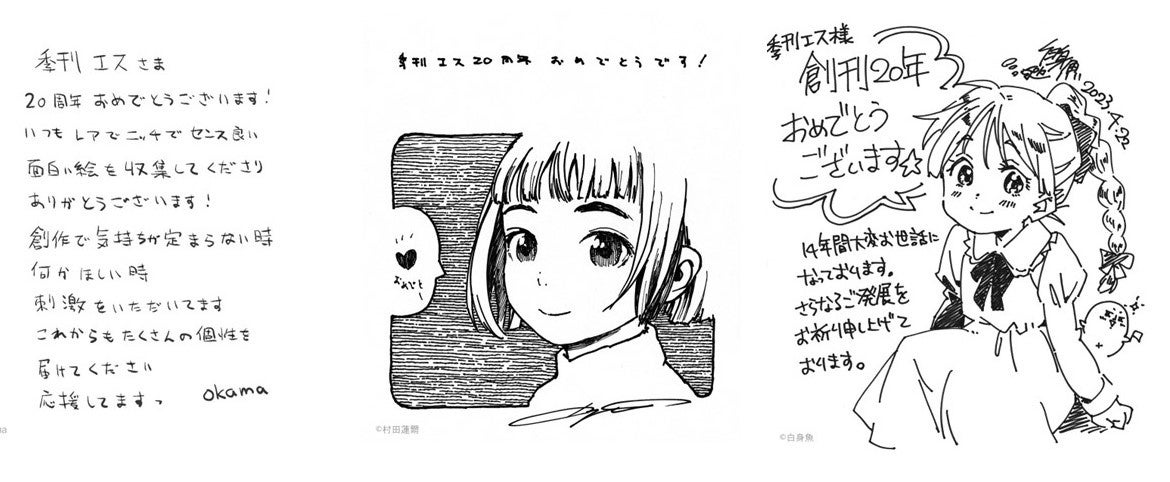 季刊 エス さま
20周年 おめでとうございます!
いつも レアで ニッチで センス良い
面白い絵を収集してくださり
ありがとうございます!
創作で気持ちが定まらない時
何かほしい時
刺激をいただいてます
これからもたくさんの個性を
届けてください
応援してますっ
okama
季刊エス20周年 おめでとうです!
おめでと
©村田蓮爾
季刊エス様
創刊20年
おめでとう
ございます☆
2023
14年間大変お世話に
なっております。
さらなるご発展を
お祈り申し上げて
おります。
©白身魚